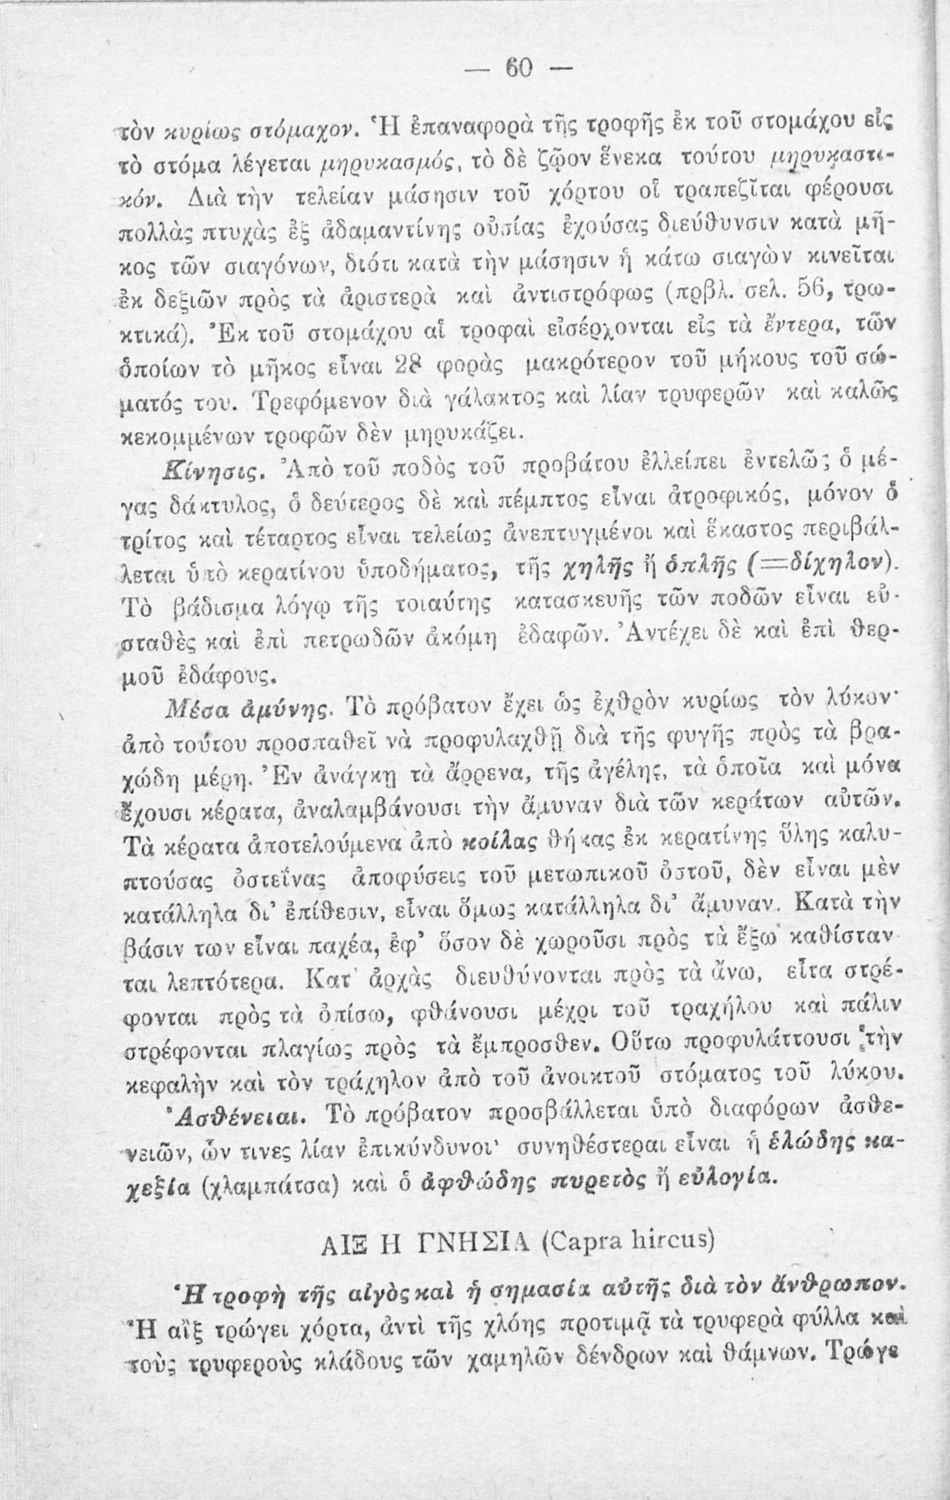 — 60 —
τὸν κυρίως στόμαχον. Ἡ ἐπαναφορὰ τῆς τροφῆς ἐκ τοῦ στομάχου εἰς
τὸ στόμα λέγεται μηρυκασμός, τὸ δὲ ζῷον ἕνεκα τούτου μηρυκαστι-
κόν. Διὰ τὴν τελείαν μάσησιν τοῦ χόρτου οἱ τραπεζῖται φέρουσι
πολλὰς πτυχὰς ἐξ ἀδαμαντίνης οὐσίας ἐχούσας διεύθυνσιν κατὰ μῆ-
κος τῶν σιαγόνων, διότι κατὰ τὴν μάσησιν ἡ κάτω σιαγὼν κινεῖται
ἐκ δεξιῶν πρὸς τὰ ἀριστερὰ καὶ ἀντιστρόφως (πρβλ. σελ. 56, τρω-
κτικά). Ἐκ τοῦ στομάχου αἱ τροφαὶ εἰσέρχονται εἰς τὰ ἔντερα, τῶν
ὁποίων τὸ μῆκος εἶναι 28 φορὰς μακρότερον τοῦ μήκους τοῦ σώ-
ματός του. Τρεφόμενον διὰ γάλακτος καὶ λίαν τρυφερῶν καὶ καλῶς
κεκομμένων τροφῶν δὲν μηρυκάζει.
Κίνησις. Ἀπὸ τοῦ ποδὸς τοῦ προβάτου ἐλλείπει ἐντελῶς ὁ μέ-
γας δάκτυλος, ὁ δεύτερος δὲ καὶ πέμπτος εἶναι ἀτροφικός, μόνον ὁ
τρίτος καὶ τέταρτος εἶναι τελείως ἀνεπτυγμένοι καὶ ἕκαστος περιβάλ-
λεται ὑπὸ κερατίνου ὑποδήματος, τῆς χηλῆς ἢ ὁπλῆς (=δίχηλον).
Τὸ βάδισμα λόγῳ τῆς τοιαύτης κατασκευῆς τῶν ποδῶν εἶναι εὐ-
σταθὲς καὶ ἐπὶ πετρωδῶν ἀκόμη ἐδαφῶν. Ἀντέχει δὲ καὶ ἐπὶ θερ-
μοῦ ἐδάφους.
Μέσα ἀμύνης. Τὸ πρόβατον ἔχει ὡς ἐχθρὸν κυρίως τὸν λύκον·
ἀπὸ τούτου προσπαθεῖ νὰ προφυλαχθῇ διὰ τῆς φυγῆς πρὸς τὰ βρα-
χώδη μέρη. Ἐν ἀνάγκῃ τὰ ἄρρενα, τῆς ἀγέλης, τὰ ὁποῖα καὶ μόνα
ἔχουσι κέρατα, ἀναλαμβάνουσι τὴν ἄμυναν διὰ τῶν κεράτων αὐτῶν.
Τὰ κέρατα ἀποτελούμενα ἀπὸ κοίλας θήκας ἐκ κερατίνης ὕλης καλυ-
πτούσας ὀστεΐνας ἀποφύσεις τοῦ μετωπικοῦ ὀστοῦ, δὲν εἶναι μὲν
κατάλληλα δι' ἐπίθεσιν, εἶναι ὅμως κατάλληλα δι' ἄμυναν. Κατὰ τὴν
βάσιν των εἶναι παχέα, ἐφ' ὅσον δὲ χωροῦσι πρὸς τὰ ἔξω καθίσταν
ται λεπτότερα. Κατ' ἀρχὰς διευθύνονται πρὸς τὰ ἄνω, εἶτα στρέ-
φονται πρὸς τὰ ὀπίσω, φθάνουσι μέχρι τοῦ τραχήλου καὶ πάλιν
στρέφονται πλαγίως πρὸς τὰ ἔμπροσθεν. Οὕτω προφυλάττουσι τὴν
κεφαλὴν καὶ τὸν τράχηλον ἀπὸ τοῦ ἀνοικτοῦ στόματος τοῦ λύκου.
Ἀσθένειαι. Τὸ πρόβατον προσβάλλεται ὑπὸ διαφόρων ἀσθε-
νειῶν, ὧν τινες λίαν ἐπικύνδυνοι· συνηθέστεραι εἶναι ἡ ἑλώδης κα-
χεξία (χλαμπάτσα) καὶ ὁ ἀφθώδης πυρετὸς ἢ εὐλογία.
ΑΙΞ Η ΓΝΗΣΙΑ (Capra hircus)
Ἡ τροφὴ τῆς αἰγὸς καὶ ἡ σημασία αὐτῆς διὰ τὸν ἄνθρωπον.
Ἡ αἲξ τρώγει χόρτα, ἀντὶ τῆς χλόης προτιμᾷ τὰ τρυφερὰ φύλλα καὶ
τοὺς τρυφεροὺς κλάδους τῶν χαμηλῶν δένδρων καὶ θάμνων. Τρώγε